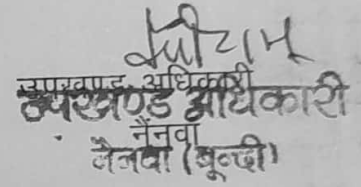 उपखण्ड अधिकारी
उपखण्ड अधिकारी
नैनवा
नैनवा (बून्दी)